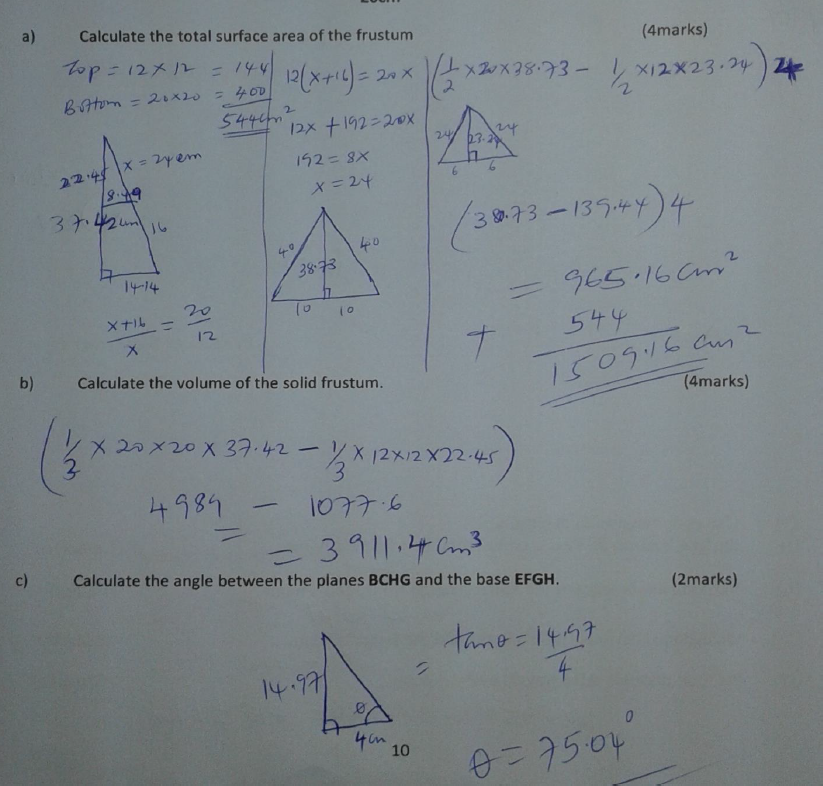 a) Calculate the total surface area of the frustum (4marks)
Top = 12 × 12 = 144
Bottom = 20×20 = 400
544cm²
22.45
x = 24cm
8.49
37.42cm
16
14.14
x+16 / x = 20 / 12
12(x+16) = 20x
12x + 192 = 20x
192 = 8x
x = 24
40
40
38.73
10 10
(1/2 ×20×38.73 – 1/2 ×12×23.24) 4
24
24
23.24
6 6
(38.73 – 139.44) 4
= 965.16 cm²
+ 544
1509.16 cm²
b) Calculate the volume of the solid frustum. (4marks)
(1/3 × 20×20 × 37.42 – 1/3 × 12×12×22.45)
4989 – 1077.6
= 3911.4 cm³
c) Calculate the angle between the planes BCHG and the base EFGH. (2marks)
14.97
θ
4cm
= tanθ = 14.97 / 4
θ = 75.04°
10